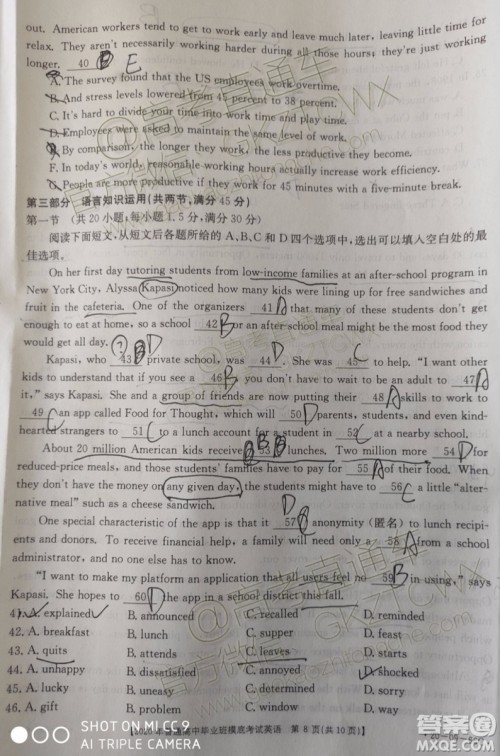 out. American workers tend to get to work early and leave much later, leaving little time for
relax. They aren't necessarily working harder during all those hours; they're just working
longer. 40 D E
A. The survey found that the US employees work overtime.
B. And stress levels lowered from 45 percent to 38 percent.
C. It's hard to divide your time into work time and play time.
D. Employees were asked to maintain the same level of work.
E. By comparison, the longer they work, the less productive they become.
F. In today's world, reasonable working hours actually increase work efficiency.
G. People are more productive if they work for 45 minutes with a five-minute break.
第三部分 语言知识运用(共两节,满分 45 分)
第一节 (共 20 小题;每小题 1.5 分,满分 30 分)
阅读下面短文,从短文后各题所给的 A、B、C 和 D 四个选项中,选出可以填入空白处的最
佳选项。
On her first day tutoring students from low-income families at an after-school program in
New York City, Alyssa Kapasi noticed how many kids were lining up for free sandwiches and
fruit in the cafeteria. One of the organizers 41 A that many of these students don't get
enough to eat at home, so a school 42 B or an after-school meal might be the most food they
would get all day. ? D
Kapasi, who 43 B private school, was 44 D. She was 45 C to help. "I want other
kids to understand that if you see a 46 B, you don't have to wait to be an adult to 47 A
it," says Kapasi. She and a group of friends are now putting their 48 A skills to work to
49 C an app called Food for Thought, which will 50 D parents, students, and even kind-
hearted strangers to 51 C to a lunch account for a student in 52 C at a nearby school.
About 20 million American kids receive B 53 B lunches. Two million more 54 D for
reduced-price meals, and those students' families have to pay for 55 A of their food. When
they don't have the money on any given day, the students might have to 56 C a little "alter-
native meal" such as a cheese sandwich. D
One special characteristic of the app is that it 57 C anonymity (匿名) to lunch recipi-
ents and donors. To receive financial help, a family will need only a 58 A from a school
administrator, and no one else has to know.
"I want to make my platform an application that all users feel no 59 B in using," says
Kapasi. She hopes to 60 D the app in a school district this fall.
41. A. explained B. announced C. recalled D. reminded
42. A. breakfast B. lunch C. supper D. feast
43. A. quits B. attends C. leaves D. starts
44. A. unhappy B. dissatisfied C. annoyed D. shocked
45. A. lucky B. uneasy C. determined D. sorry
46. A. gift B. problem C. window D. way
普通高中毕业班摸底考试英语 第 8 页(共 10 页)
SHOT ON MI CC 9
AI TRIPLE CAMERA
答案圈